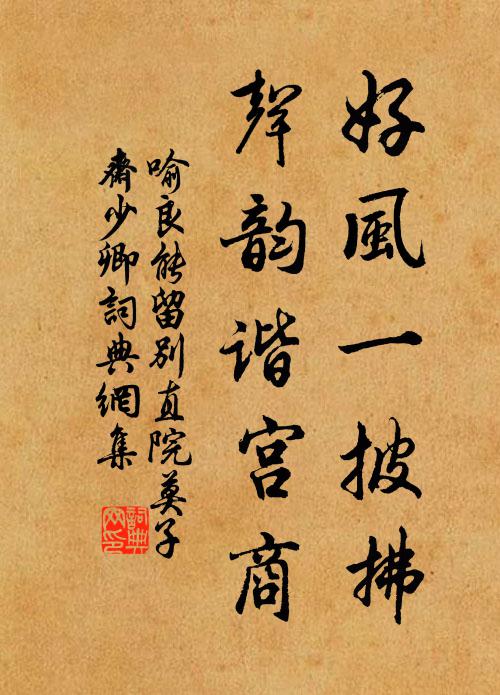 好風一披拂
聲韵谐宫商
喻良能留别直院莫子
齋少卿詞典網集
詞典
网印